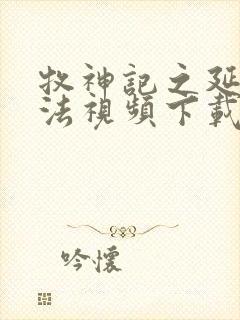 牧神記之延
法視頻下載
吟懷